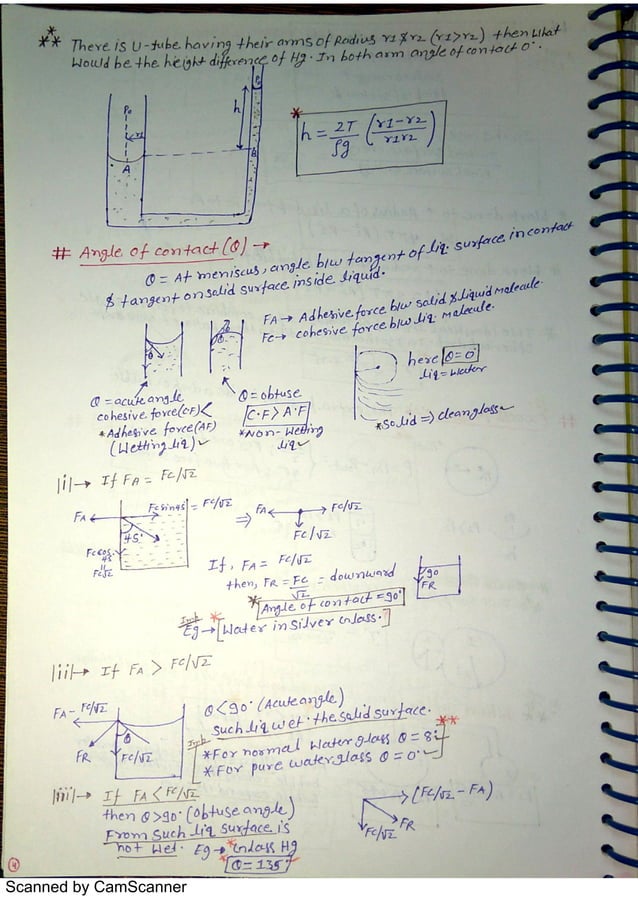 ** There is U-tube having their arms of Radius r1 & r2 (r1>r2) then What
Would be the height difference of Hg. In both arm angle of contact 0°.
P0
r1
A
h
B
* h = 2T/ρg (r1-r2/r1r2)
# Angle of contact (θ) →
θ = At meniscus, angle b/w tangent of liq. surface in contact
& tangent on solid surface inside liquid.
FA → Adhesive force b/w solid & liquid Molecule.
FC → cohesive force b/w liq. molecule.
θ = acute angle
cohesive force (CF) <
*Adhesive force (AF)
(Wetting liq) ✓
θ = obtuse
C.F > A.F
*Non-Wetting
liq ✓
here θ=0°
liq = Water
*Solid ⇒ clean glass ✓
|i|→ If FA = FC/√2
FA
FC sin45 = FC/√2
45°
FC cos
45
||
FC/√2
⇒
FA
FC/√2
FC/√2
If, FA = FC/√2
then, FR = FC/√2 = downward
* Angle of contact = 90°
90
FR
Imb
Eg → * [Water in Silver Glass.]
|ii|→ If FA > FC/√2
FA - FC/√2
FR
θ
FC/√2
θ<90° (Acute angle)
such liq wet. the solid surface.
Imb
**
*For normal Water glass θ = 8° ✓
*For pure water glass θ = 0° ✓
|iii|→ If FA < FC/√2
then θ>90° (Obtuse angle)
From such liq surface is
not Wet. Eg → * Glass Hg
θ = 135°
(FC/√2 - FA)
FC/√2
FR
Scanned by CamScanner